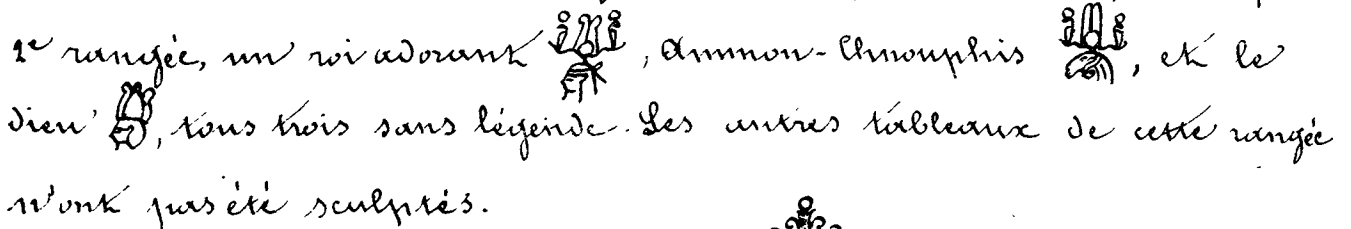 2e rangée, un roi adorant , Ammon-Chnouphis , et le
dieu , tous trois sans légende. Les autres tableaux de cette rangée
n'ont pas été sculptés.